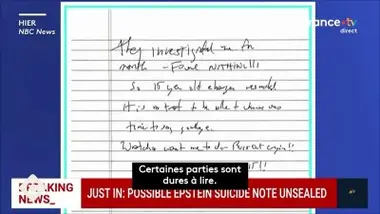 HIER
NBC News
france•tv
direct
They investigated me for
month — Found NOTHING!!!
So 15 year old charges resulted
It is a treat to be able to choose
time to say goodbye.
Watcha want me to do — Burst out cryin!!
Certaines parties sont
dures à lire.
BREAKING
NEWS_
JUST IN: POSSIBLE EPSTEIN SUICIDE NOTE UNSEALED